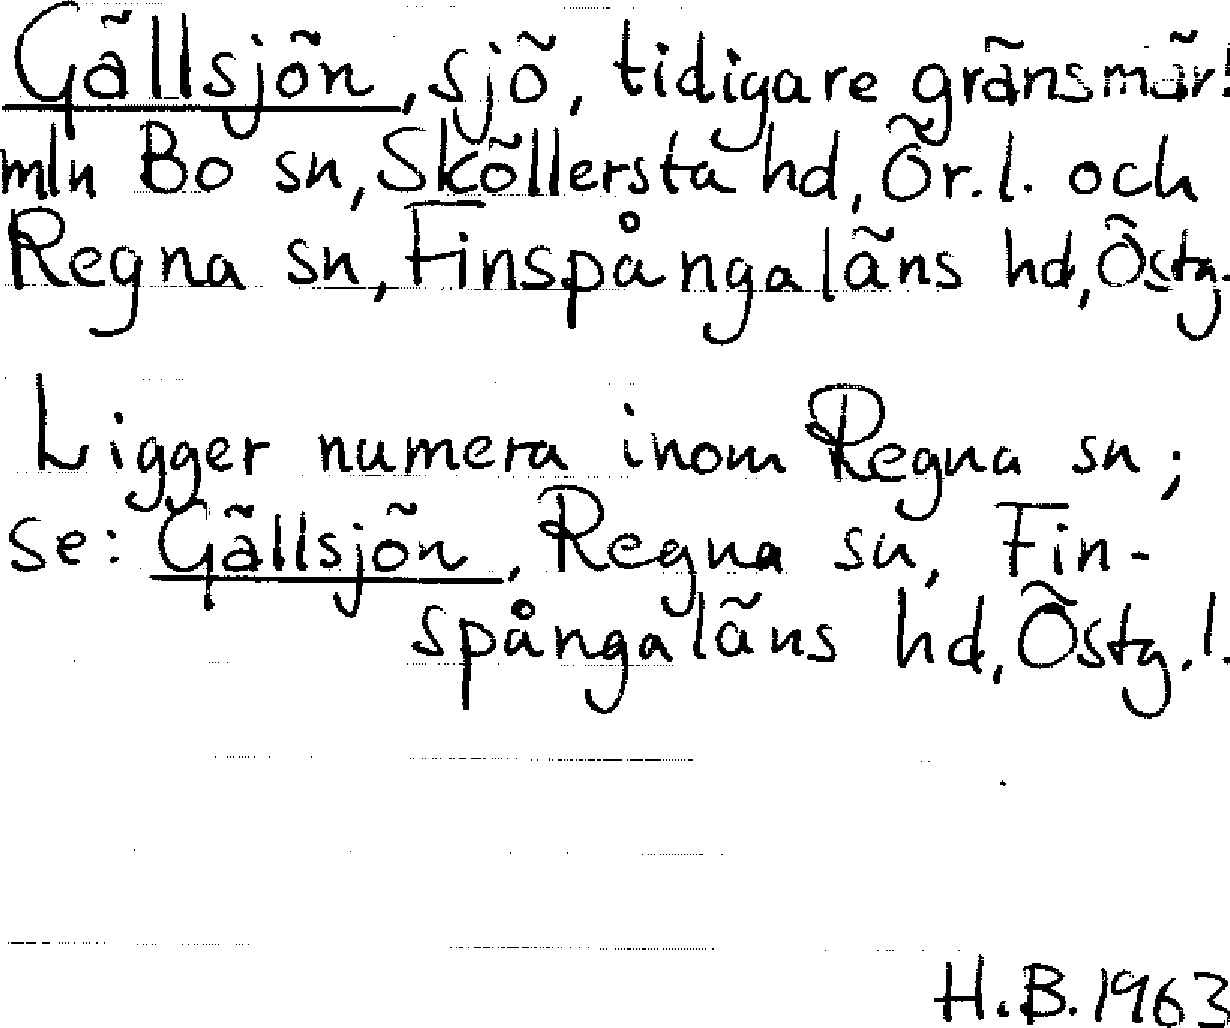 Gällsjön, sjö, tidigare gränsmär!
mln Bo sn, Sköllersta hd, Ör.l. och
Regna sn, Finspångaläns hd, Östg.
Ligger numera inom Regna sn;
se: Gällsjön, Regna sn, Fin-
spångaläns hd, Östg.l.
H.B. 1963